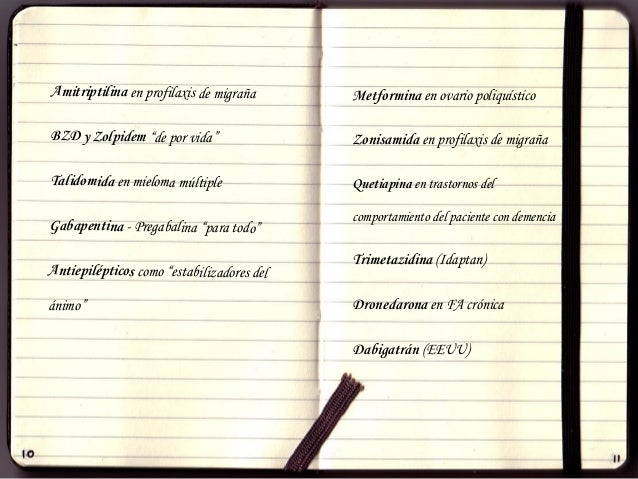 Amitriptilina en profilaxis de migraña
BZD y Zolpidem “de por vida”
Talidomida en mieloma múltiple
Gabapentina - Pregabalina “para todo”
Antiepilépticos como “estabilizadores del
ánimo”
10
Metformina en ovario poliquístico
Zonisamida en profilaxis de migraña
Quetiapina en trastornos del
comportamiento del paciente con demencia
Trimetazidina (Idaptan)
Dronedarona en FA crónica
Dabigatrán (EEUU)
11